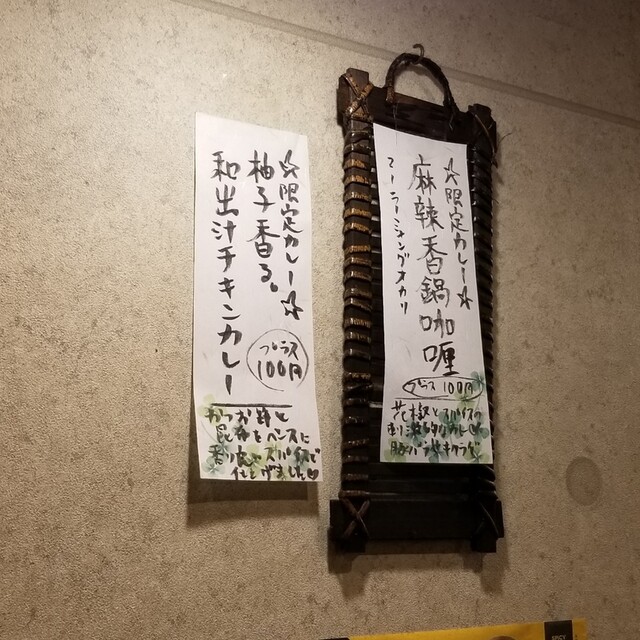 ☆限定カレー☆
麻辣香鍋咖喱
マーラーシャングオカリ
プラス 100円
花椒とスパイスの
刺激的なカレー
豚バラ
キクラゲ
☆限定カレー☆
柚子香る。
和出汁チキンカレー
プラス
100円
かつお粉と
昆布とベースに
香り高いスパイスで
仕上げました♡